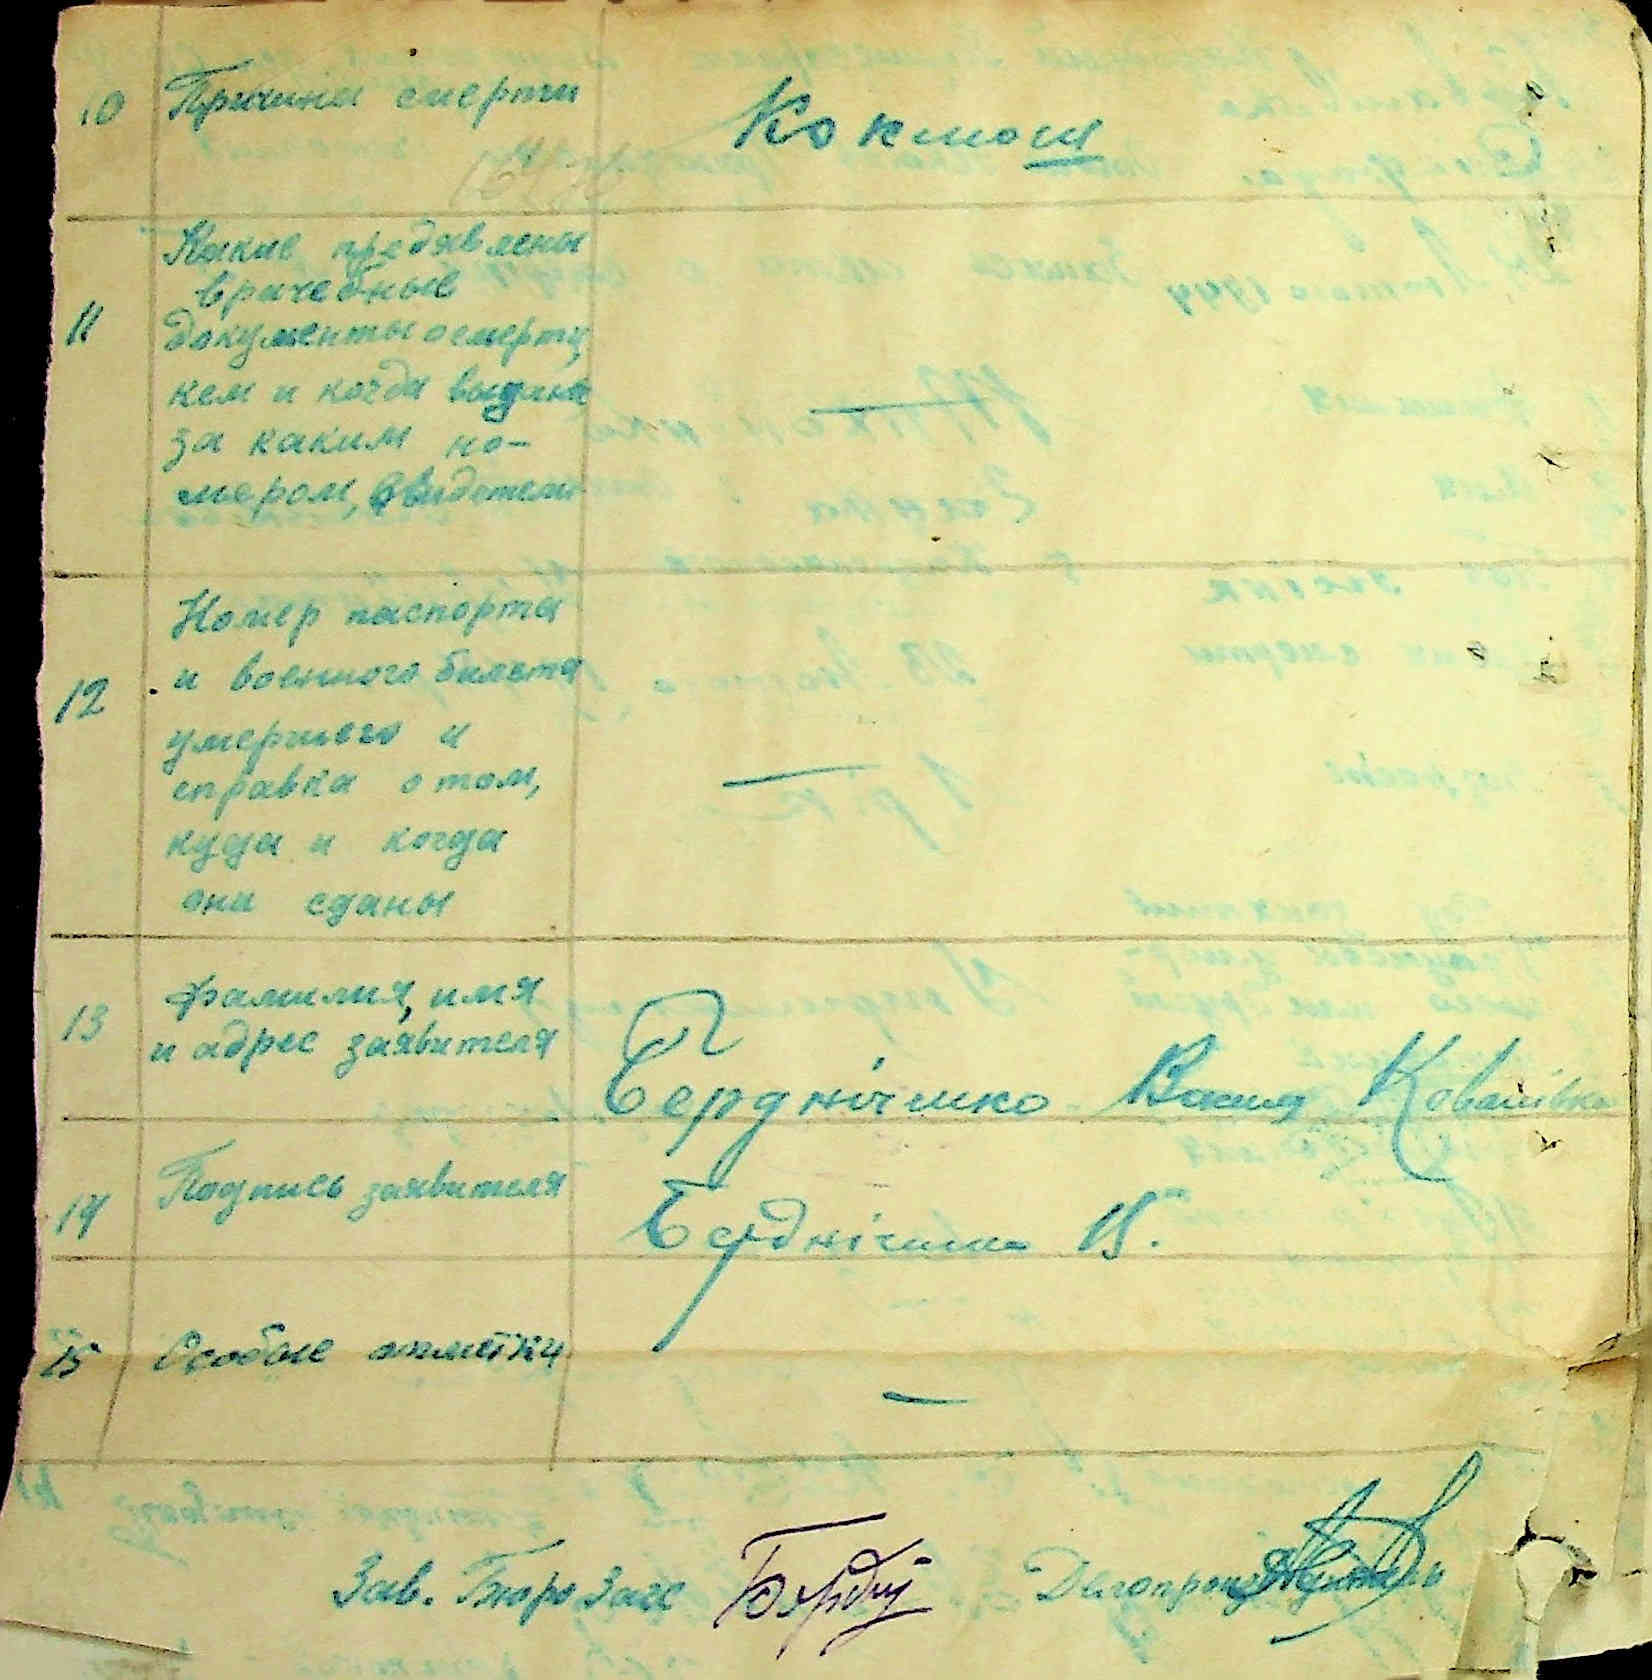 10 Причина смерти
Коклюш
11
Какие предявлены
врачебные
документы о смерти,
кем и когда выданы
за каким но-
мером, свидетели
—
12
Номер паспорта
и военного билета
умершего и
справка о том,
куда и когда
они сданы
—
13
Фамилия, имя
и адрес заявителя
Бердніченко Ковалівка
14
Подпись заявителя
Бердніченко
15 Особые отметки
—
Зав. Бюро Загс